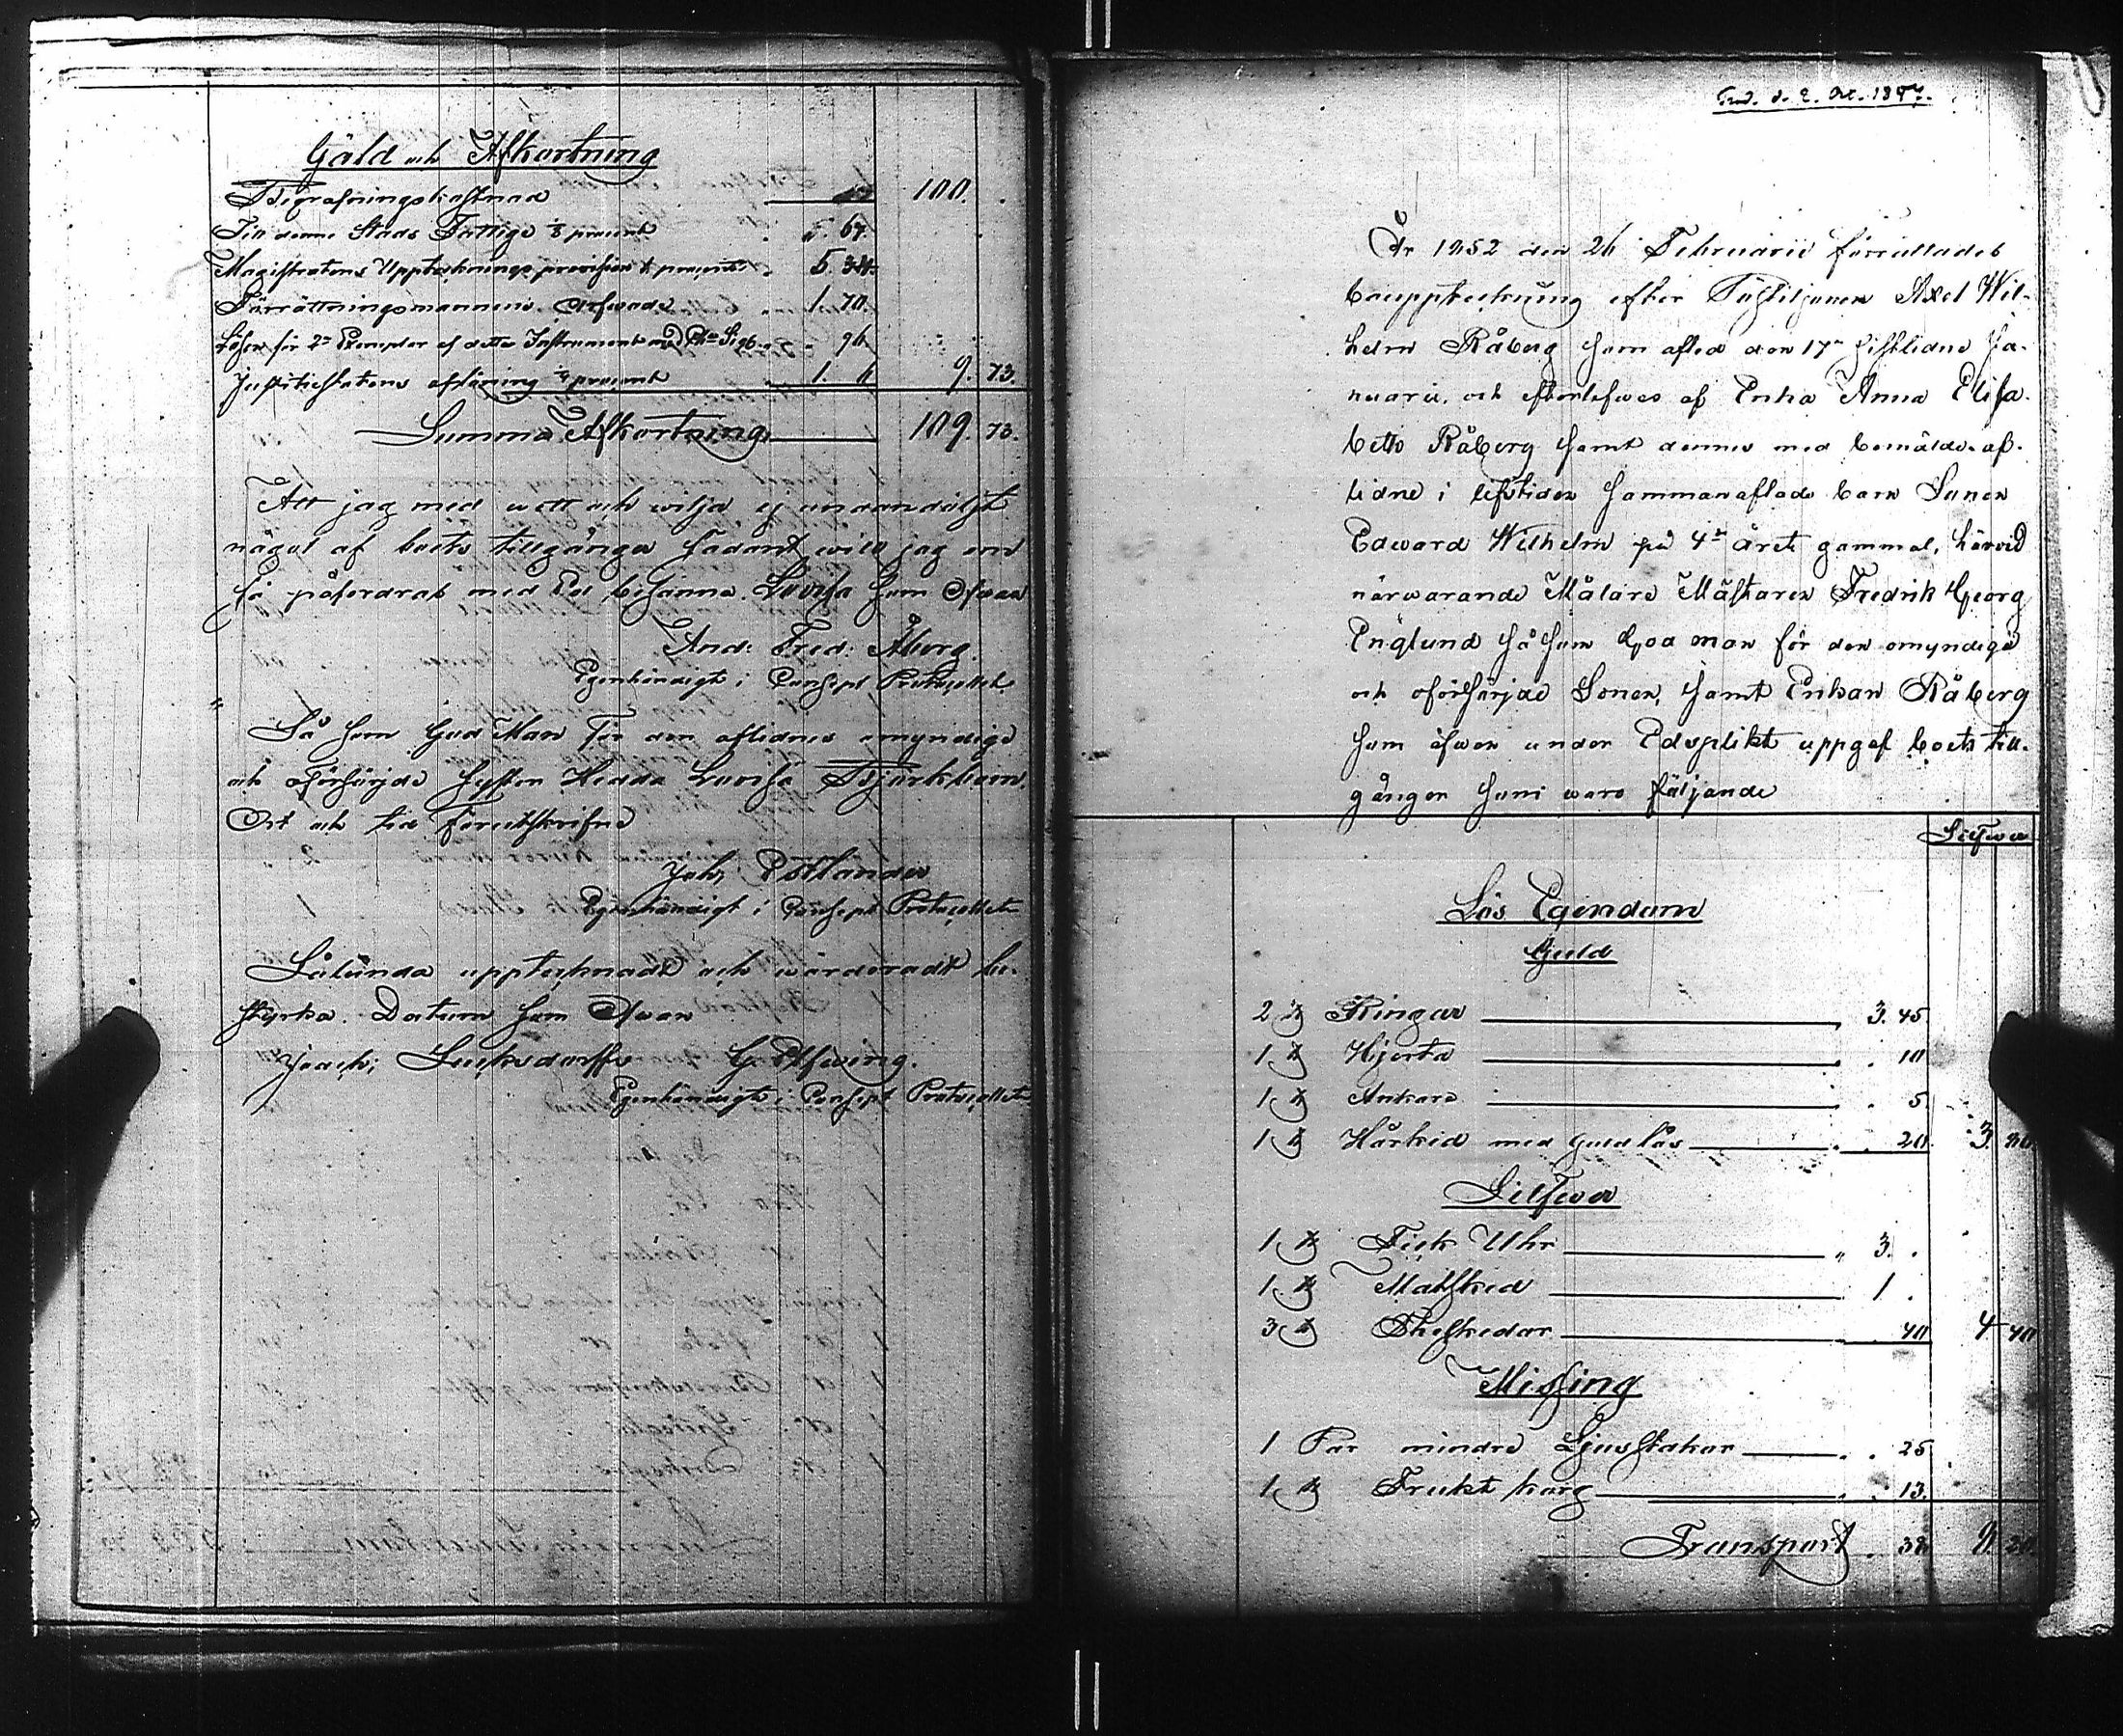 Gäld och Afkortning
Begrafningskostnad 100.
Till denna Stads Fattige 1/8 procent . . 67.
Magistratens Upptecknings provision procent . 5. 34
Förrättningsmannens Arfwode 1. 70.
Lösen för 2ne Exemplar af detta Instrument 96
Justitiæstatens aflöning 1/4 procent 1. 6 9. 73.
Summa Afkortning 109. 73.
Att jag med wett och wilja ej undandöljt
något af boets tillgångar sådant will jag om
så påfordras med Ed besanna. Lovisa som ofwan
And: Fred: Åberg.
Egenhändigt i Consept Protocollet
Så som God Man för den aflidnes omyndige
och oförsörjde syster Hedda Lovisa Björkbom.
Ort och tid förutskrifne
Joh, Östlander
Egenhändigt i Consept Protocollet
Sålunda upptecknadt och wärderadt be-
styrka. Datum som ofwan
Joach; Lucksdorff G. Elfwing.
Egenhändigt i Consept Protocollet
d. 2. Oct. 1857.
År 1852 den 26 Februarii förrättades
bouppteckning efter Axel Wil-
helm Råberg som afled den 17de sistlidne Ja-
nuarii, och efterlefwes af Enka Anna Elisa-
beth Råberg samt dennes med bemälde af-
lidne i lifstiden sammanaflade barn Sonen
Edward Wilhelm på 4de året gammal, härvid
närwarande Målare Mästaren Fredrik Georg
Englund så som God man för den omyndige
och oförsörjde Sonen, samt Enkan Råberg
som äfwen under Edsplikt uppgaf boets till-
gångar som woro följande
Silfwer
Lös Egendom
Guld
2 st Ringar 3. 45
1 st Hjerta . 10
1 st Ankare . 5.
1 st Hårked med guldlås . 20 3. 80
Silfwer
1 st Fick Uhr 3. .
1 st Matsked 1 .
3 st Theskedar 40 4 40
Missing
1 Par mindre Ljusstakar . 25
1 st Frukt korg . 13.
Transport . 38 8. 20.